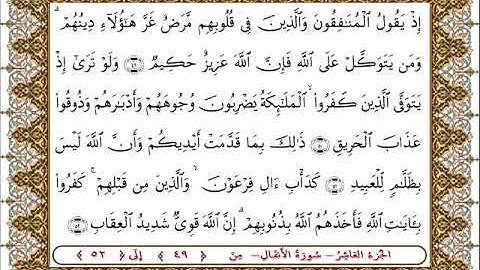 إِذْ يَقُولُ ٱلْمُنَٰفِقُونَ وَٱلَّذِينَ فِى قُلُوبِهِم مَّرَضٌ غَرَّ هَٰٓؤُلَآءِ دِينُهُمْ ۗ
وَمَن يَتَوَكَّلْ عَلَى ٱللَّهِ فَإِنَّ ٱللَّهَ عَزِيزٌ حَكِيمٌ ﴿٤٩﴾ وَلَوْ تَرَىٰٓ إِذْ
يَتَوَفَّى ٱلَّذِينَ كَفَرُوا۟ ۙ ٱلْمَلَٰٓئِكَةُ يَضْرِبُونَ وُجُوهَهُمْ وَأَدْبَٰرَهُمْ وَذُوقُوا۟
عَذَابَ ٱلْحَرِيقِ ﴿٥٠﴾ ذَٰلِكَ بِمَا قَدَّمَتْ أَيْدِيكُمْ وَأَنَّ ٱللَّهَ لَيْسَ
بِظَلَّٰمٍ لِّلْعَبِيدِ ﴿٥١﴾ كَدَأْبِ ءَالِ فِرْعَوْنَ ۙ وَٱلَّذِينَ مِن قَبْلِهِمْ ۚ كَفَرُوا۟
بِـَٔايَٰتِ ٱللَّهِ فَأَخَذَهُمُ ٱللَّهُ بِذُنُوبِهِمْ ۗ إِنَّ ٱللَّهَ قَوِىٌّ شَدِيدُ ٱلْعِقَابِ ﴿٥٢﴾
الجزء العاشر - سورة الأنفال - من ﴿ ٤٩ ﴾ إلى ﴿ ٥٢ ﴾